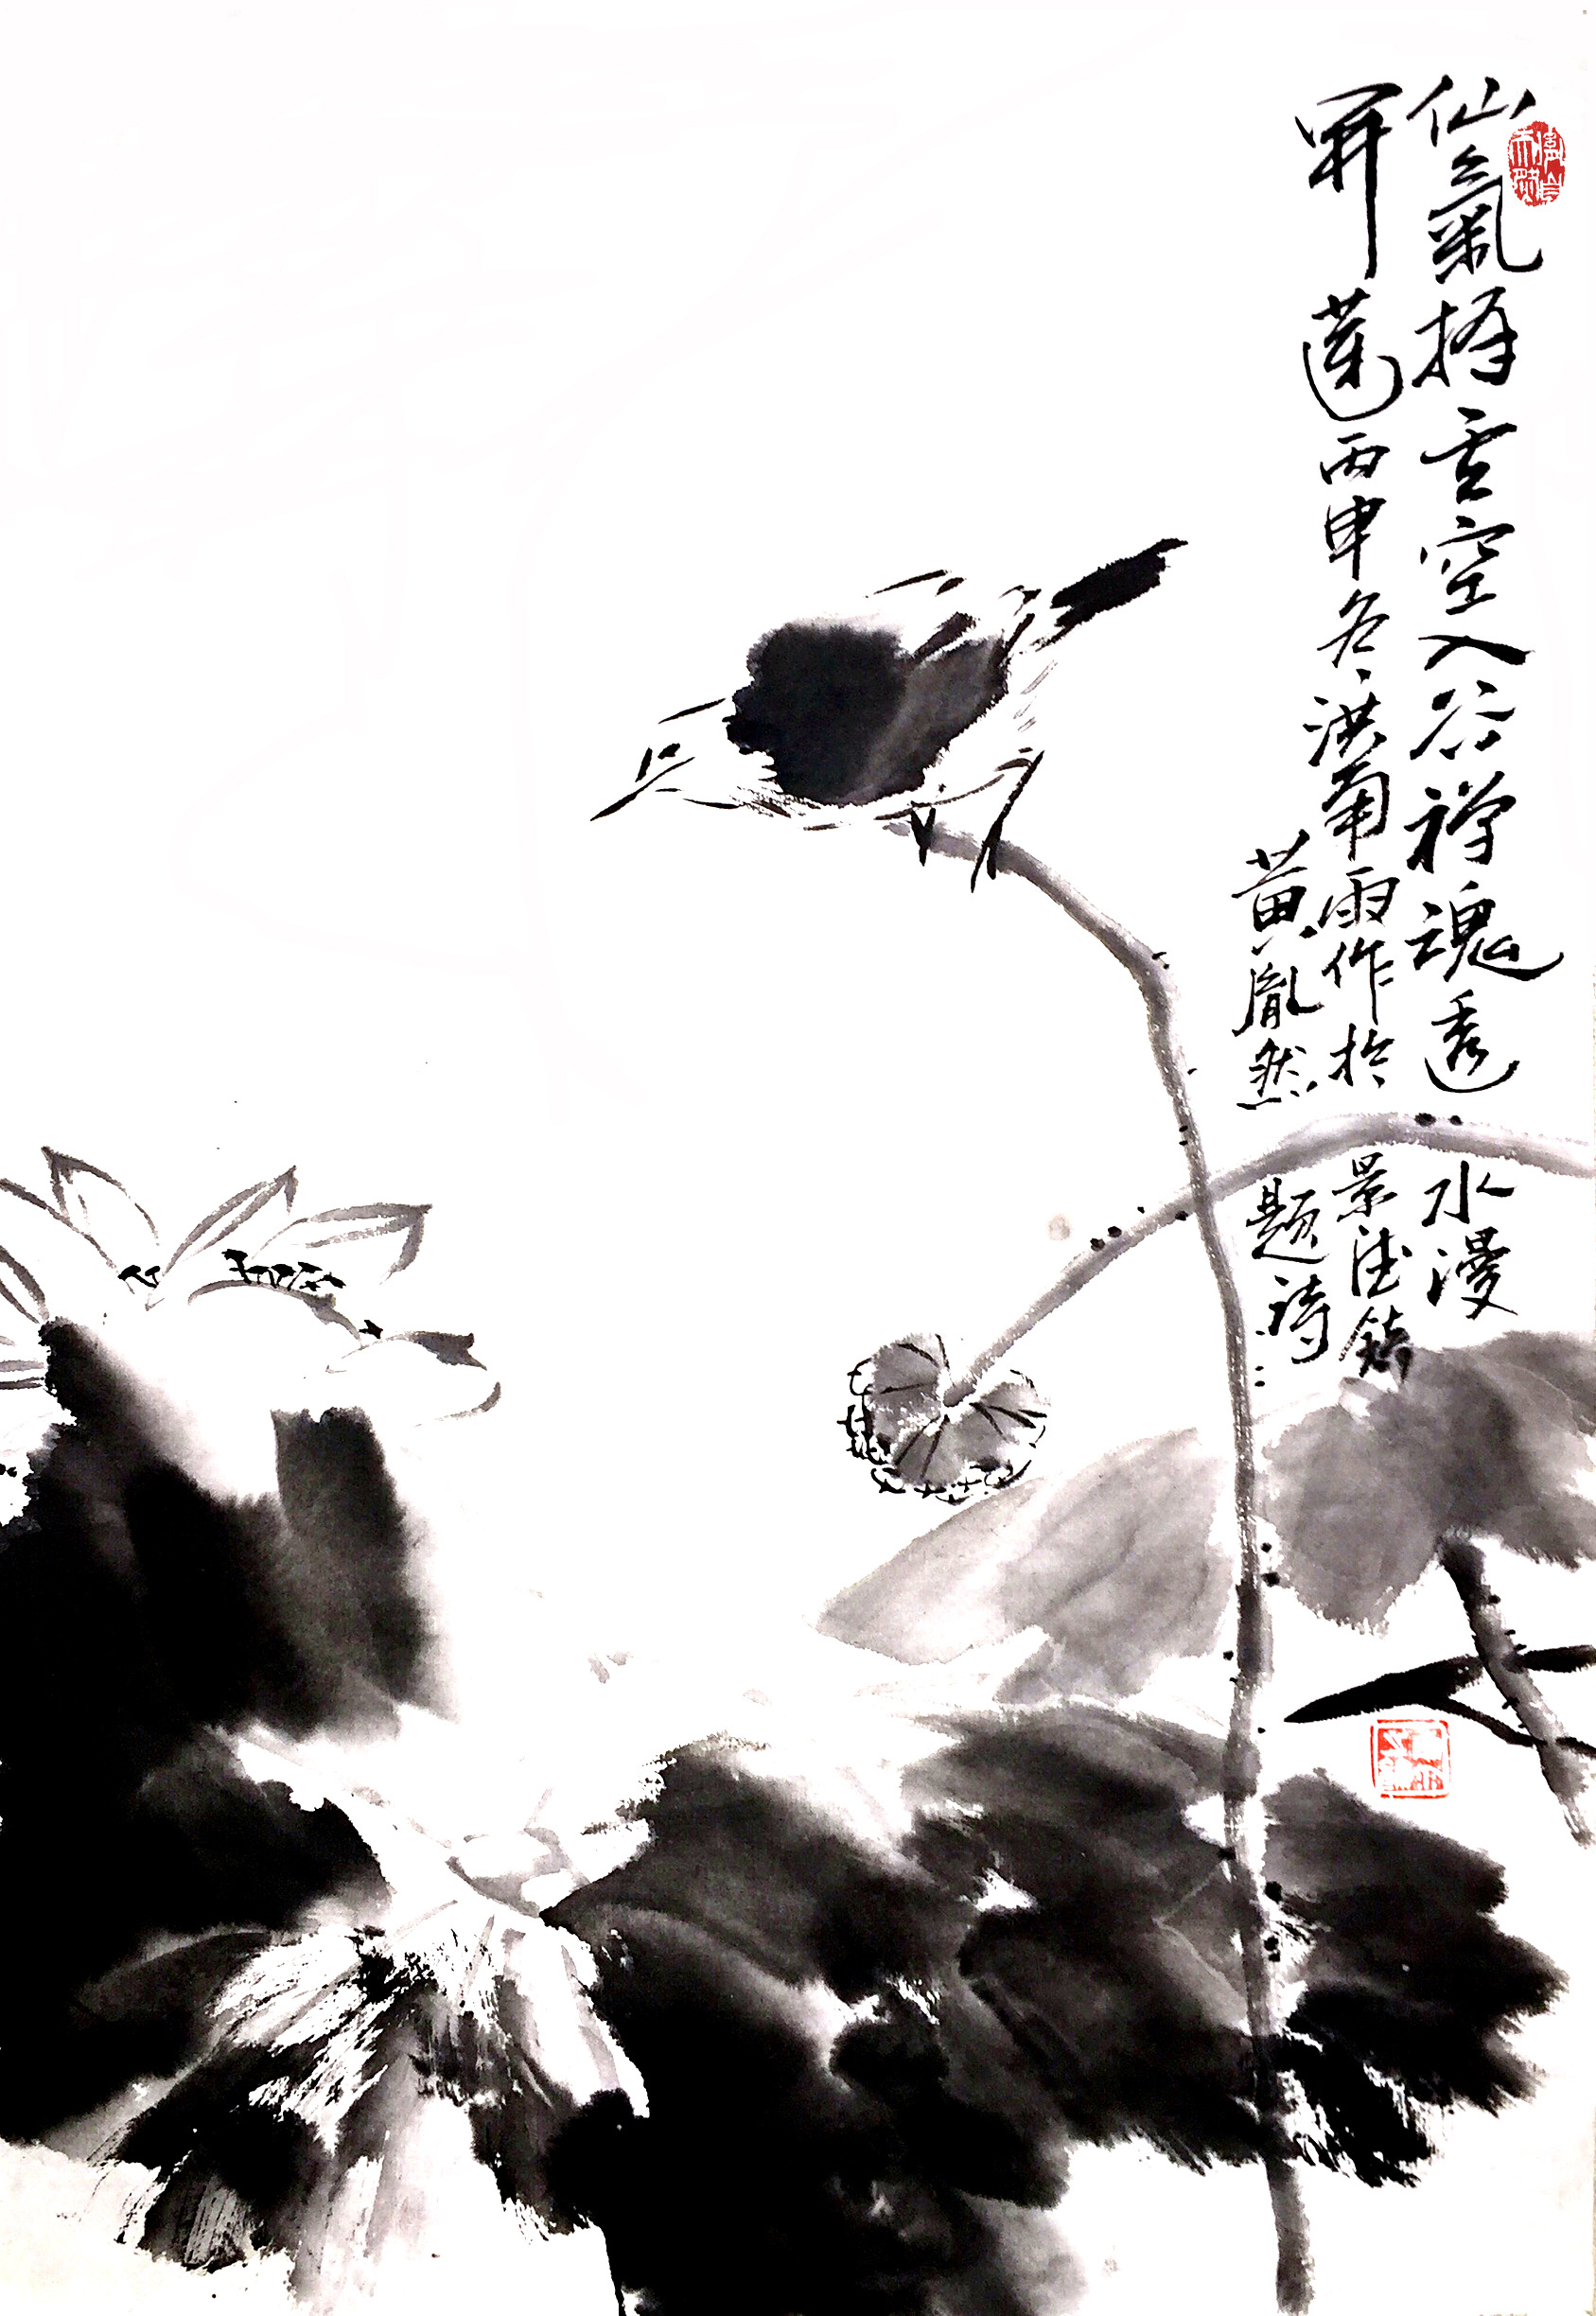 仙氣擇雲空入谷禪魂透水漫
開蓮丙申冬洪雨作於景德鎮
黄胤然題詩